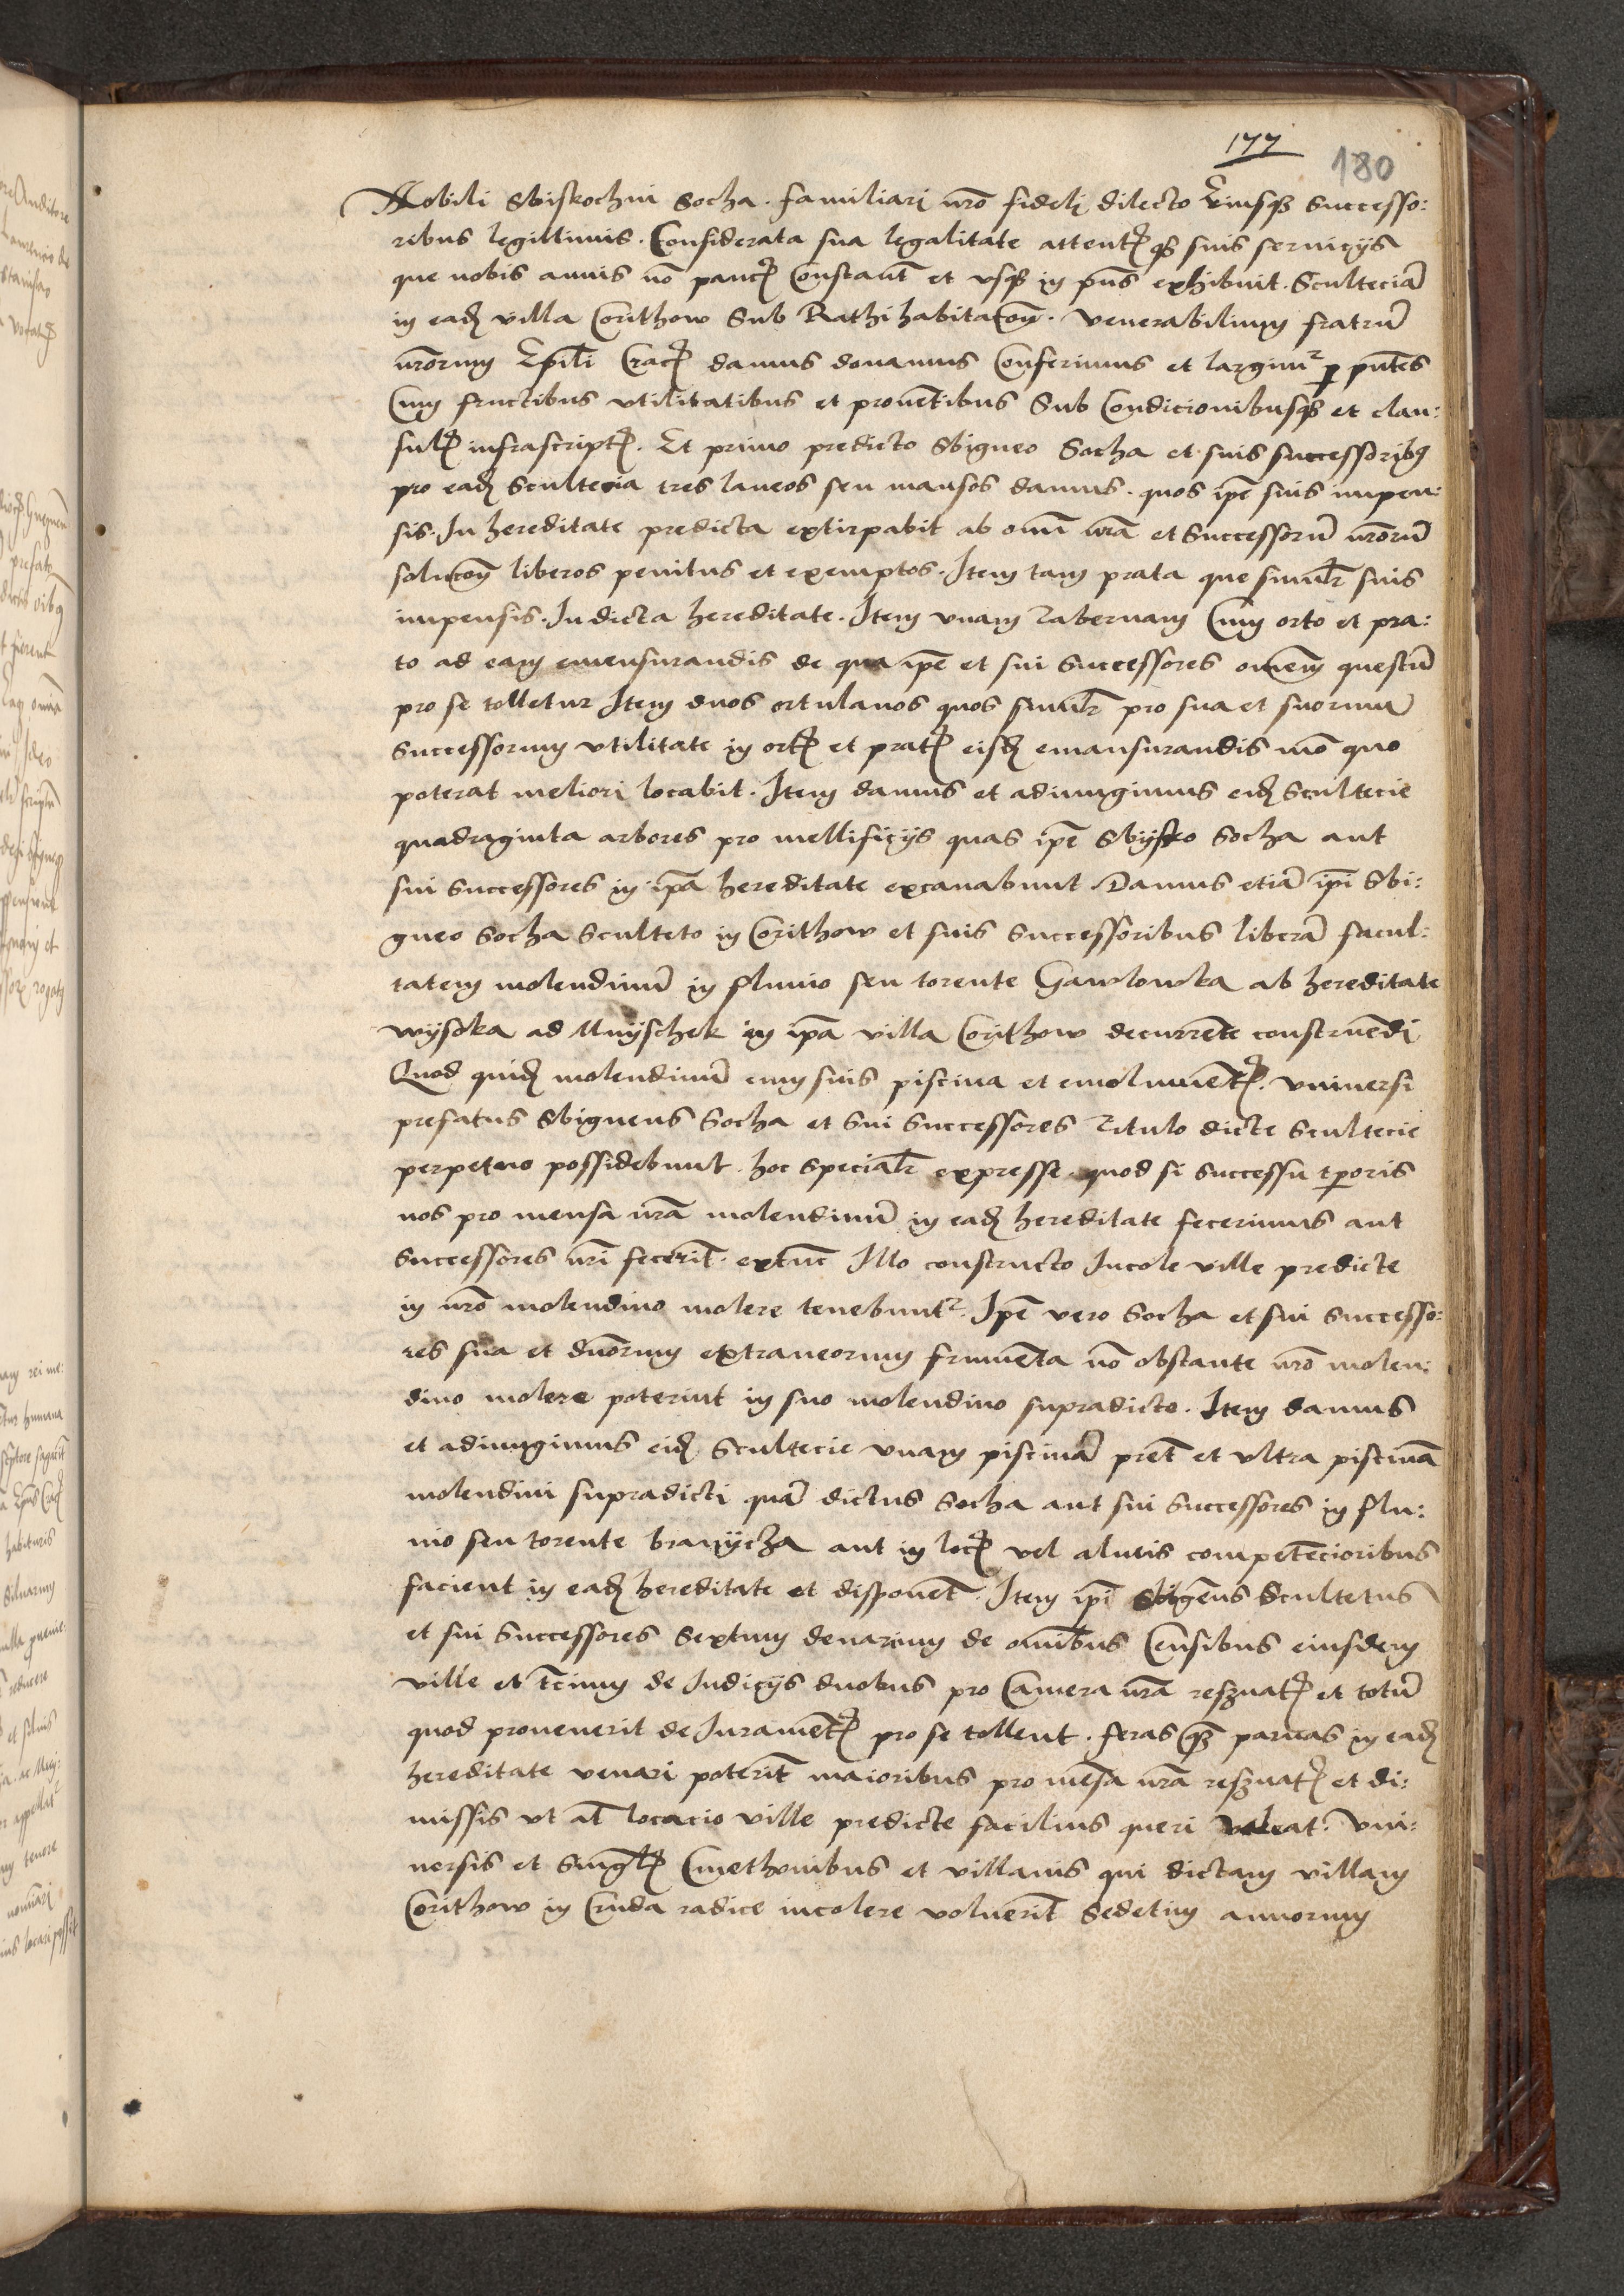 177
180
Nobili Sbiskochni Socha . familiari nr̄o fideli dilecto Eiusqꝫ Successo:
ribus legittimis . Considerata sua legalitate attentꝭ qꝫ suis seruicijs
que nobis annis nō paucꝭ Constant̄ et vsqꝫ in pn̄s exhibuit . Scultetiā
in eadꝫ villa Corithow Sub Rathihabitacōe . venerabilium fratrū
nr̄orum Ep̄li Cracꝭ damus donamus Conferimus et largimr̄ ꝑ pn̄tes
Cum fructibus vtilitatibus et prouent̄ibus Sub Condicionibusqꝫ et clau:
sulꝭ infrascriptꝭ . Et primo predicto Sbigneo Socha et suis successoribꝫ
pro eadꝫ Scultecia tres laneos seu mansos damus . quos ip̄e suis impen:
sis . In hereditate predicta extirpabit ab om̄i nr̄a et Successorū nr̄orū
solucōe liberos penitus et exemptos . Item tam prata que simil̄r suis
impensis . In dicta hereditate . Item vnam Tabernam Cum orto et pra:
to ad eam emensurandis de qua ip̄e et sui Successores om̄em questū
pro se tolletur Item duos ortulanos quos simil̄r pro sua et suorum
Successorum vtilitate in ortꝭ et pratꝭ eisdꝫ emansurandis mō quo
poterat meliori locabit . Item damus et adiungimus eidꝫ Scultecie
quadraginta arbores pro mellificijs quas ip̄e Sbysko Socha aut
sui Successores in ip̄a hereditate excauabunt . Damus etiā ip̄i Sbi:
gneo Socha Sculteto in Corithow et suis Successoribus liberā facul:
tatem molendinū in fluuio seu torente Gawlowka ab hereditate
wysoka ad Mnyschek in ip̄a villa Corithow decurrente construēdi
Quod quidꝫ molendinū cum suis piscina et emolumentꝭ . vniuersi
prefatus Sbigneus Socha et Sui Successores Titulo dicte Scultecie
perpetuo possidebunt . hoc Special̄r expresse . quod si successu tꝑoris
nos pro mensa nr̄a molendinū in eadꝫ hereditate fecerimus aut
Successores nr̄i fecerīt . extūc Illo constructo Incole ville predicte
in nr̄o molendino molere tenebuntr̄ . Ip̄e vero Socha et sui Successo:
res sua et duorum extraneorum frumēta nō obstante nr̄o molen:
dino molere poterint in suo molendino supradicto . Item damus
et adiungimus eidꝫ Scultecie vnam piscinā pret̄ et vltra piscinā
molendini supradicti quā dictus Socha aut sui Successores in flu:
uio seu torente branycza aut in locꝭ vel alutis compet̄ecioribus
facient in eadꝫ hereditate et disponēt . Item ip̄i Sbigēus Scultetus
et sui Successores Sextum denarium de om̄ibus Censibus eiusdem
ville et t̄cium de Iudicijs duobus pro Camera nr̄a res̄uatꝭ et totū
quod prouenerit de Iuramentꝭ pro se tollent . feras qꝫ paruas in eadꝫ
hereditate venari poterīt maioribus pro mēsa nr̄a res̄uatꝭ et di:
missis vt al̄ locacio ville predicte facilius queri valeat . Vni:
uersis et Singl̄ꝭ Cmethonibus et villanis qui dictam villam
Corithow in Cruda radice incolere voluerīt Sedetim annorum